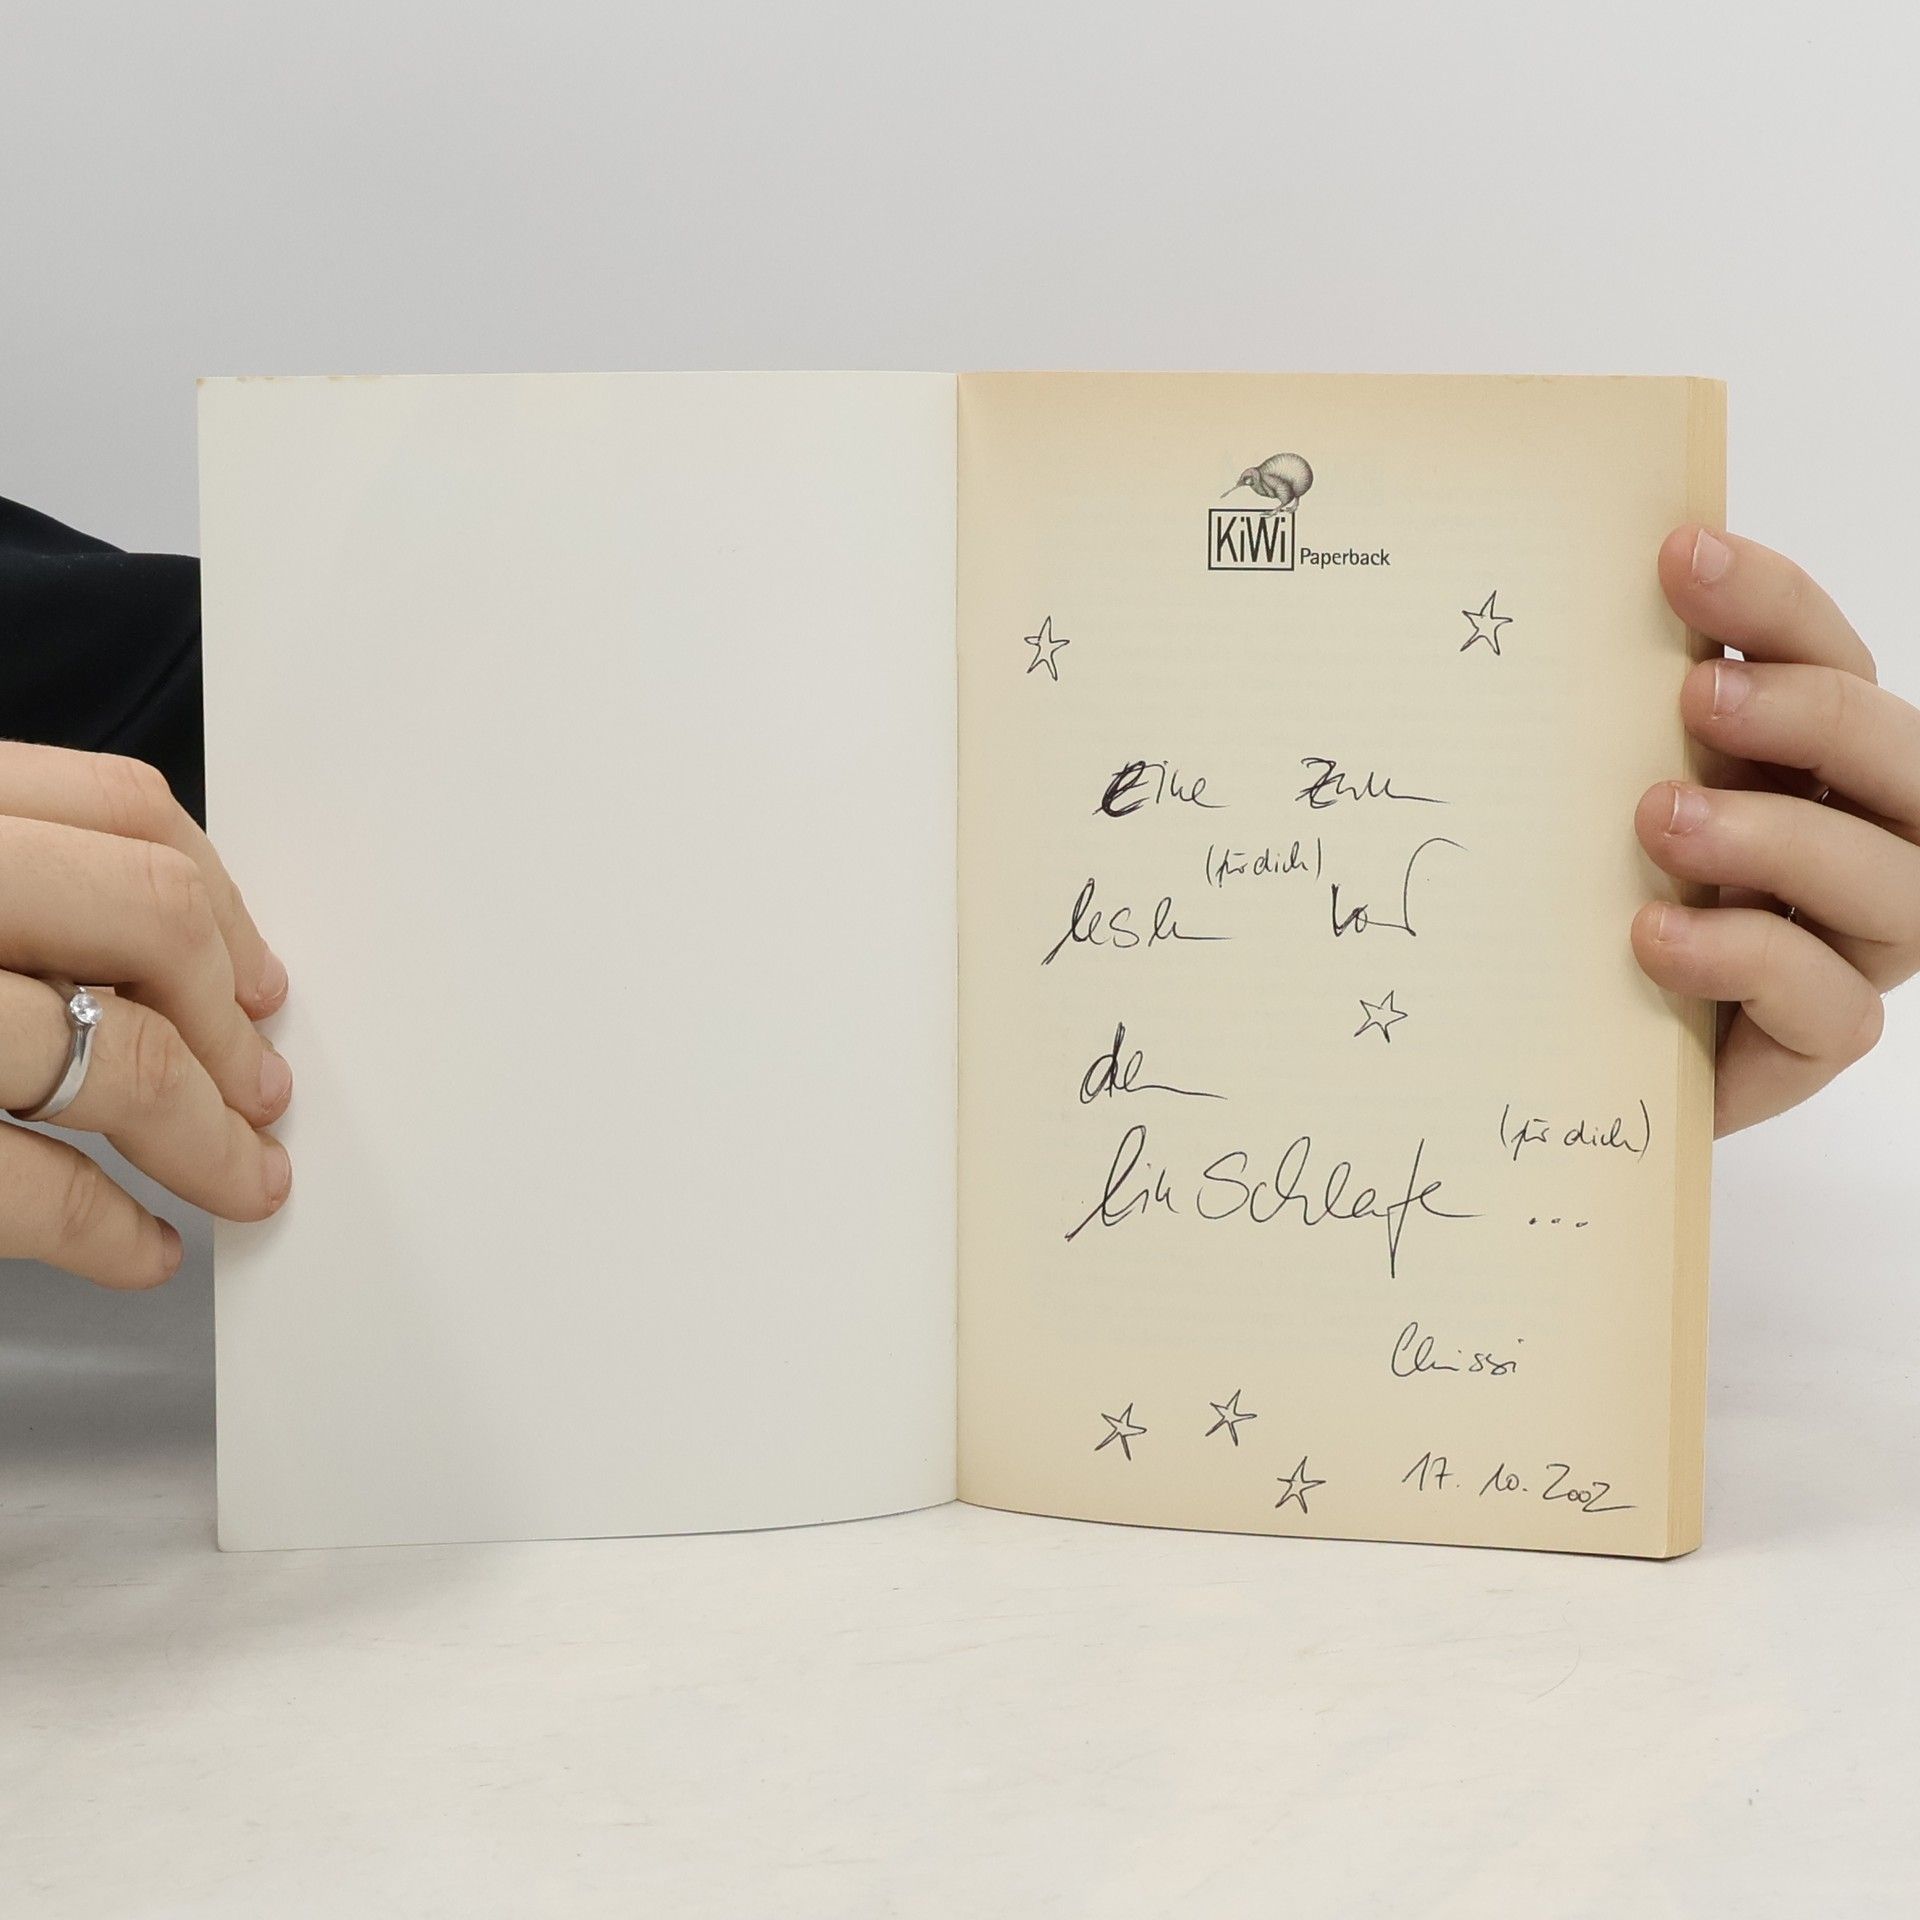 KiWi Paperback
Eine zum
(für dich)
lesen vor
dem
Einschlafen
(für dich)
...
Chrissi
17. 10. 2002